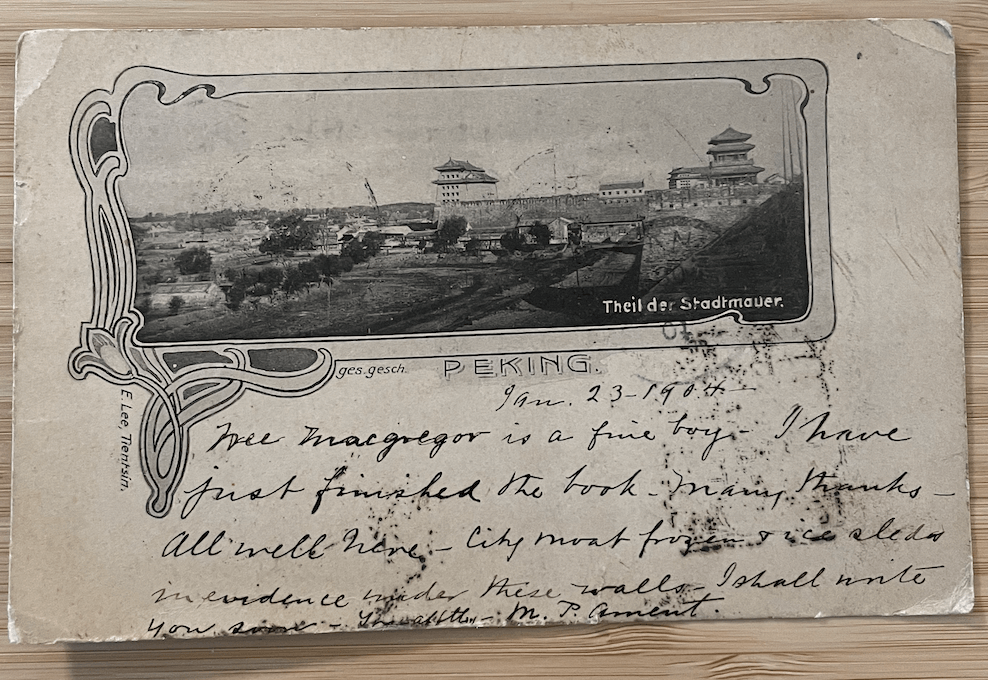 Theil der Stadtmauer.
ges. gesch.
PEKING.
E. Lee, Tientsin.
Jan. 23-1904-
Wee Macgregor is a fine boy- I have
just finished the book - Many thanks -
All well here - City moat frozen & ice sleds
in evidence under these walls - I shall write
you soon - M. P. Ament.